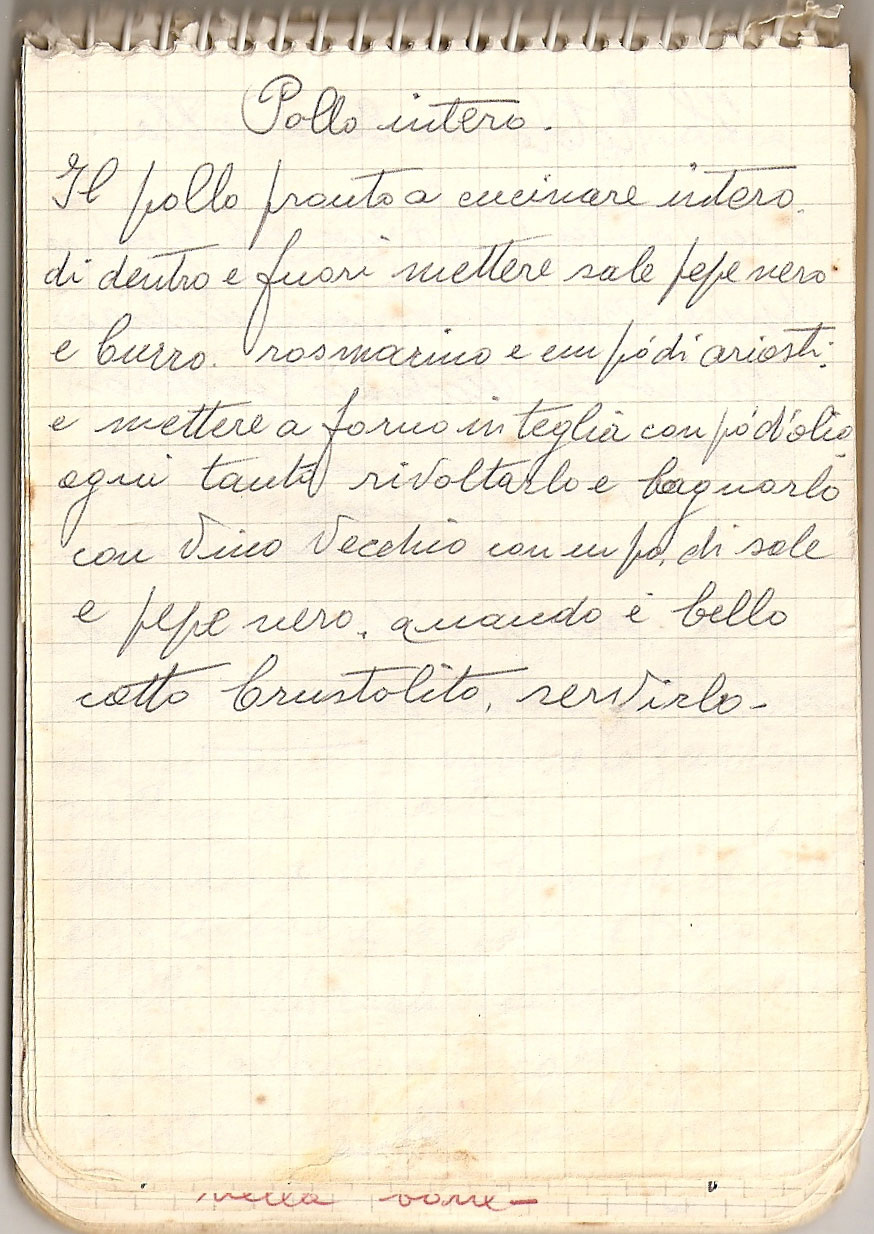 Pollo intero.
Il pollo pronto a cucinare intero.
di dentro e fuori mettere sale pepe nero
e burro. rosmarino e un pó di ariosti:
e mettere a forno in teglia con pó d'olio
ogni tanto rivoltarlo e bagnarlo
con Vino Vecchio con un po, di sale
e pepe nero. quando è bello
cotto brustolito, servirlo-